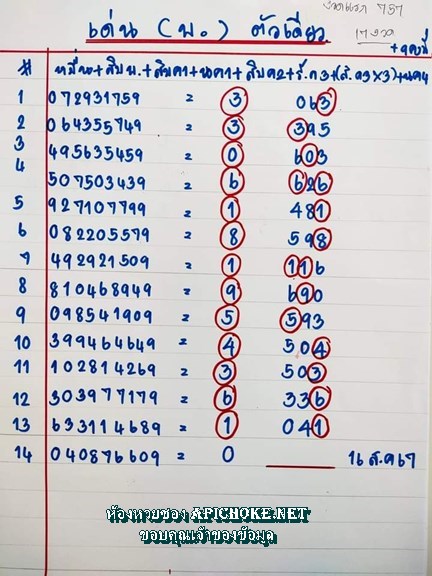 งวดแรก 757
เด่น (บ.) ตัวเดียว
17 งวด
# หมื่น+สิบบ.+สิบค1+นค1+สิบค2+ร.ค3+(ส.ค3x3)+นค4
1 072931759 = 3 063
2 064355749 = 3 395
3 495635459 = 0 603
4 507503439 = 6 626
5 927107799 = 1 481
6 082205579 = 8 598
7 492921509 = 1 116
8 810468949 = 9 690
9 098541909 = 5 593
10 399464649 = 4 504
11 102814269 = 3 503
12 303977179 = 6 336
13 633114689 = 1 041
14 040876609 = 0 16 ส.ค 67
ห้องหวยซอง APICHOKE.NET
ขอบคุณเจ้าของข้อมูล